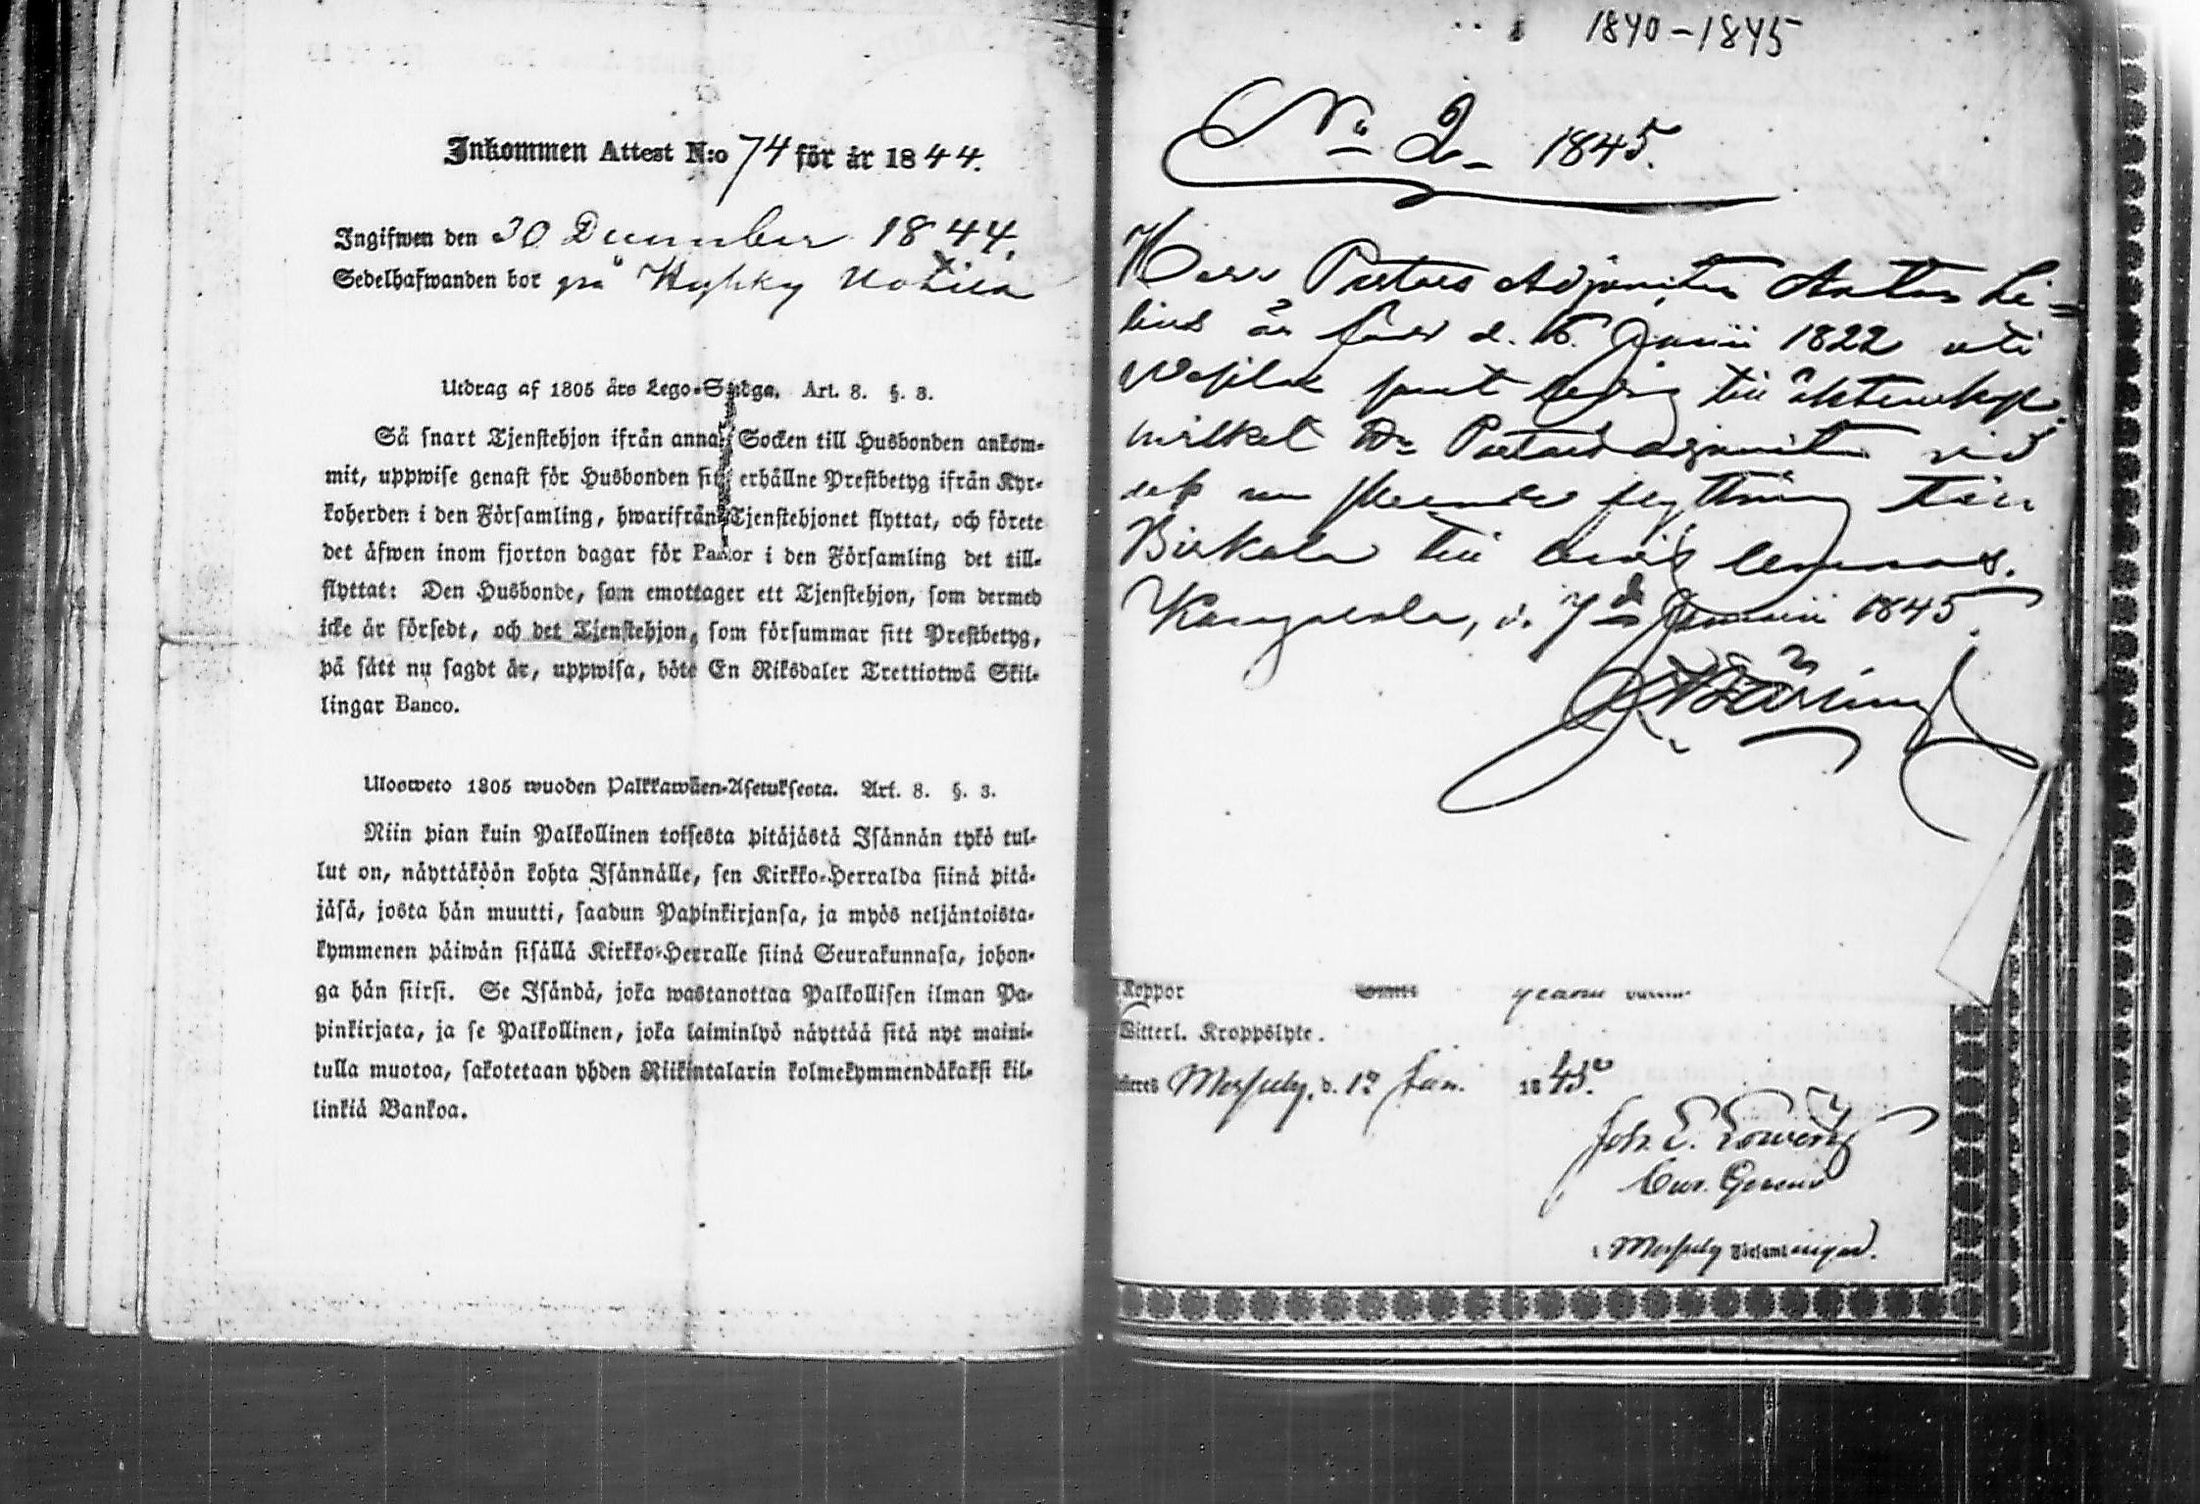 Inkommen Attest N:o 74 för år 1844.
Ingifwen den 30 December 1844.
Sedelhafwanden bor på Hyhky Uotila
Utdrag af 1805 års Lego-Stadga. Art. 8. §. 3.
Så snart Tjenstehjon ifrån annat Socken till Husbonden ankom-
mit, uppwise genast för Husbonden sitt erhållne Prestbetyg ifrån Kyr-
koherden i den Församling, hwarifrån Tjenstehjonet flyttat, och förete
det äfwen inom fjorton dagar för Pastor i den Församling det till-
flyttat: Den Husbonde, som emottager ett Tjenstehjon, som dermed
icke är försedt, och det Tjenstehjon, som försummar sitt Prestbetyg,
på sätt nu sagdt är, uppwisa, böte En Riksdaler Trettiotwå Skil-
lingar Banco.
Uloosweto 1805 wuoden Palkkawäen-Asetuksesta. Art. 8. §. 3.
Niin pian kuin Palkollinen toisesta pitäjästä Isännän tykö tul-
lut on, näyttäköön kohta Isännälle, sen Kirkko-Herralda siinä pitä-
jäsä, josta hän muutti, saadun Papinkirjansa, ja myös neljäntoista-
kymmenen päiwän sisällä Kirkko-Herralle siinä Seurakunnasa, johon-
ga hän siirsi. Se Isändä, joka wastanottaa Palkollisen ilman Pa-
pinkirjata, ja se Palkollinen, joka laiminlyö näyttää sitä nyt maini-
tulla muotoa, sakotetaan yhden Riikintalarin kolmekymmendäkaksi kil-
linkiä Bankoa.
1840-1845
No 2 1845.
Herr Pastors Adjuncten Anton Le-
lius är född d. 6 Junii 1822 uti
samt ledig till äktenskap,
hvilket Hr Pastorsadjuncten vid
dess nu skeende flyttning till
Birkala till bevis lemnas.
Kangasala, d. 7 Januarii 1845
Koppor
Witterl. Kroppslyte.
Messuby, d. 12 Jan. 1845.
Joh. E.
Cur. Gerens
i Messuby Församlingar.